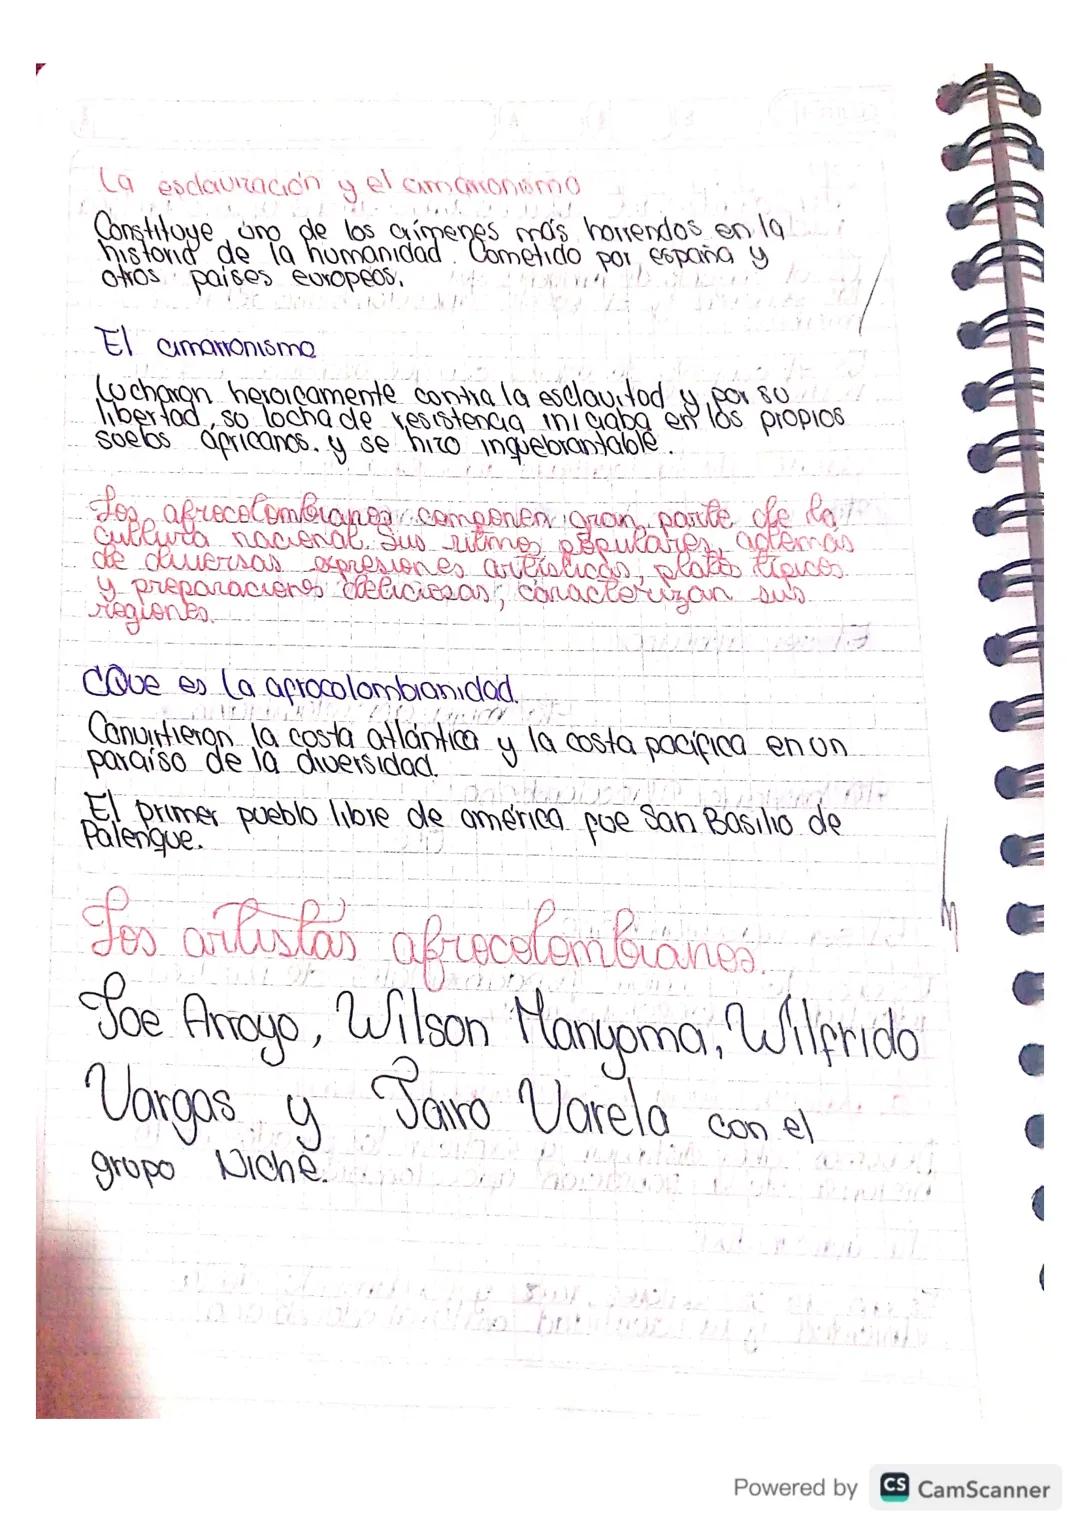 La esclavización y el cimarronismo
Constituye uno de los crímenes más horrendos en la
historia de la humanidad. Cometido por españa y
otros paises europeos.
El cimarronismo
Lucharon heroicamente contra la esclavitud y por su
libertad, su lucha de resistencia iniciaba en los propios
suelos africanos. y se hizo inquebrantable.
Los afrocolombianos componen gran parte de la
cultura nacional. Sus ritmos populares, además
de diversas expresiones artísticas, platos típicos
y preparaciones deliciosas, caracterizan sus
regiones.
¿Que es la afrocolombianidad.
Convirtieron la costa atlántica y la costa pacífica en un
paraíso de la diversidad.
El primer pueblo libre de américa fue San Basilio de
Palenque.
Los artistas afrocolombianos.
Joe Arroyo, Wilson Manyoma, Wilfrido
Vargas y Jairo Varela con el
grupo Niche.
Powered by CS CamScanner